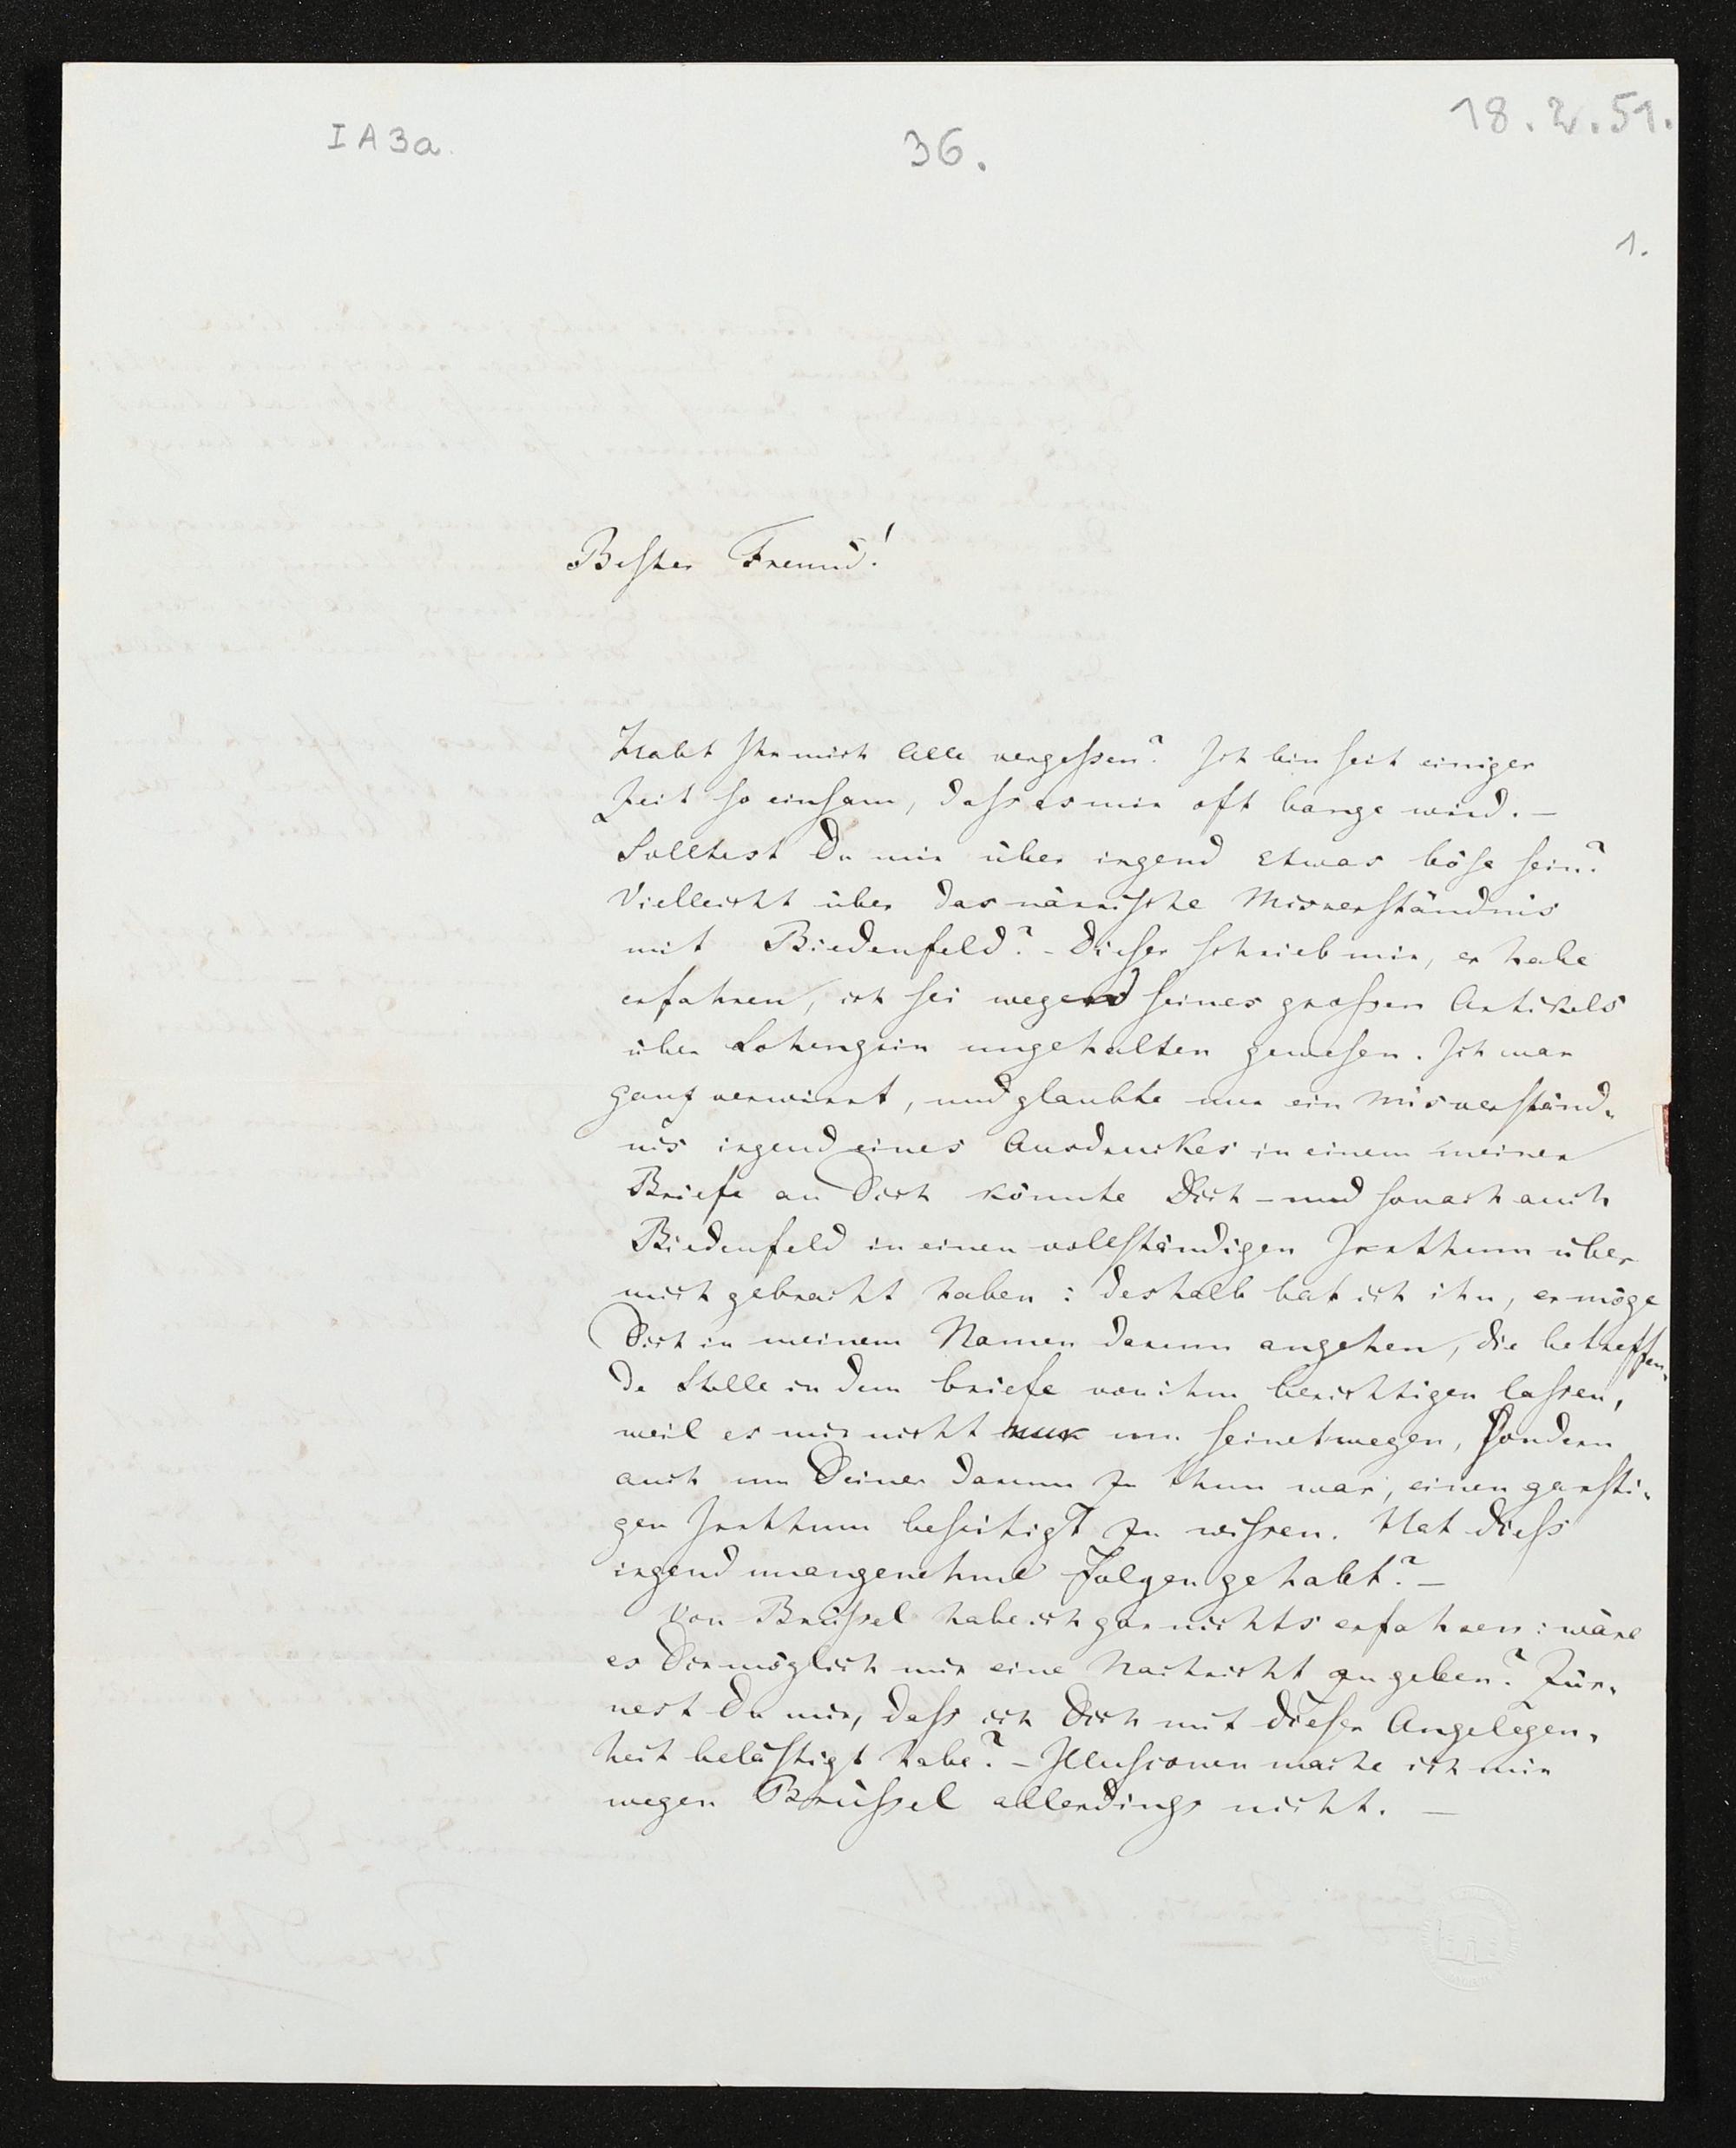 I A 3a.
36.
18.2.51.
1.
Bester Freund!
Habt Ihr mich Alle vergessen? Ich bin seit einiger
Zeit so einsam, dass es mir oft bange wird. –
Solltest Du mir über irgend etwas böse sein?
Vielleicht über das närrische Misverständnis
mit Biedenfeld? – Dieser schrieb mir, er habe
erfahren, ich sei wegen seines grossen Artikels
über Lohengrin ungehalten gewesen. Ich war
ganz verwirrt, und glaubte nur ein Misverständ-
nis irgend eines Ausdruckes in einem meiner
Briefe an Dich könnte Dich – und sonach auch
Biedenfeld in einen vollständigen Irrthum über
mich gebracht haben: deshalb bat ich ihn, er möge
Dich in meinem Namen darum angehen, die betreffen-
de Stelle in dem briefe von ihm berichtigen lassen,
weil es mir nicht nur um seinetwegen, sondern
auch um Deiner darum zu thun war, einen garsti-
gen Irrthum beseitigt zu wissen. Hat diess
irgend unangenehme Folgen gehabt? –
Von Brüssel habe ich gar nichts erfahren: wäre
es Dir möglich mir eine Nachricht zu geben? Zür-
nest Du mir, dass ich Dich mit dieser Angelegen-
heit belästigt habe? – Illusionen mache ich mir
wegen Brüssel allerdings nicht. –